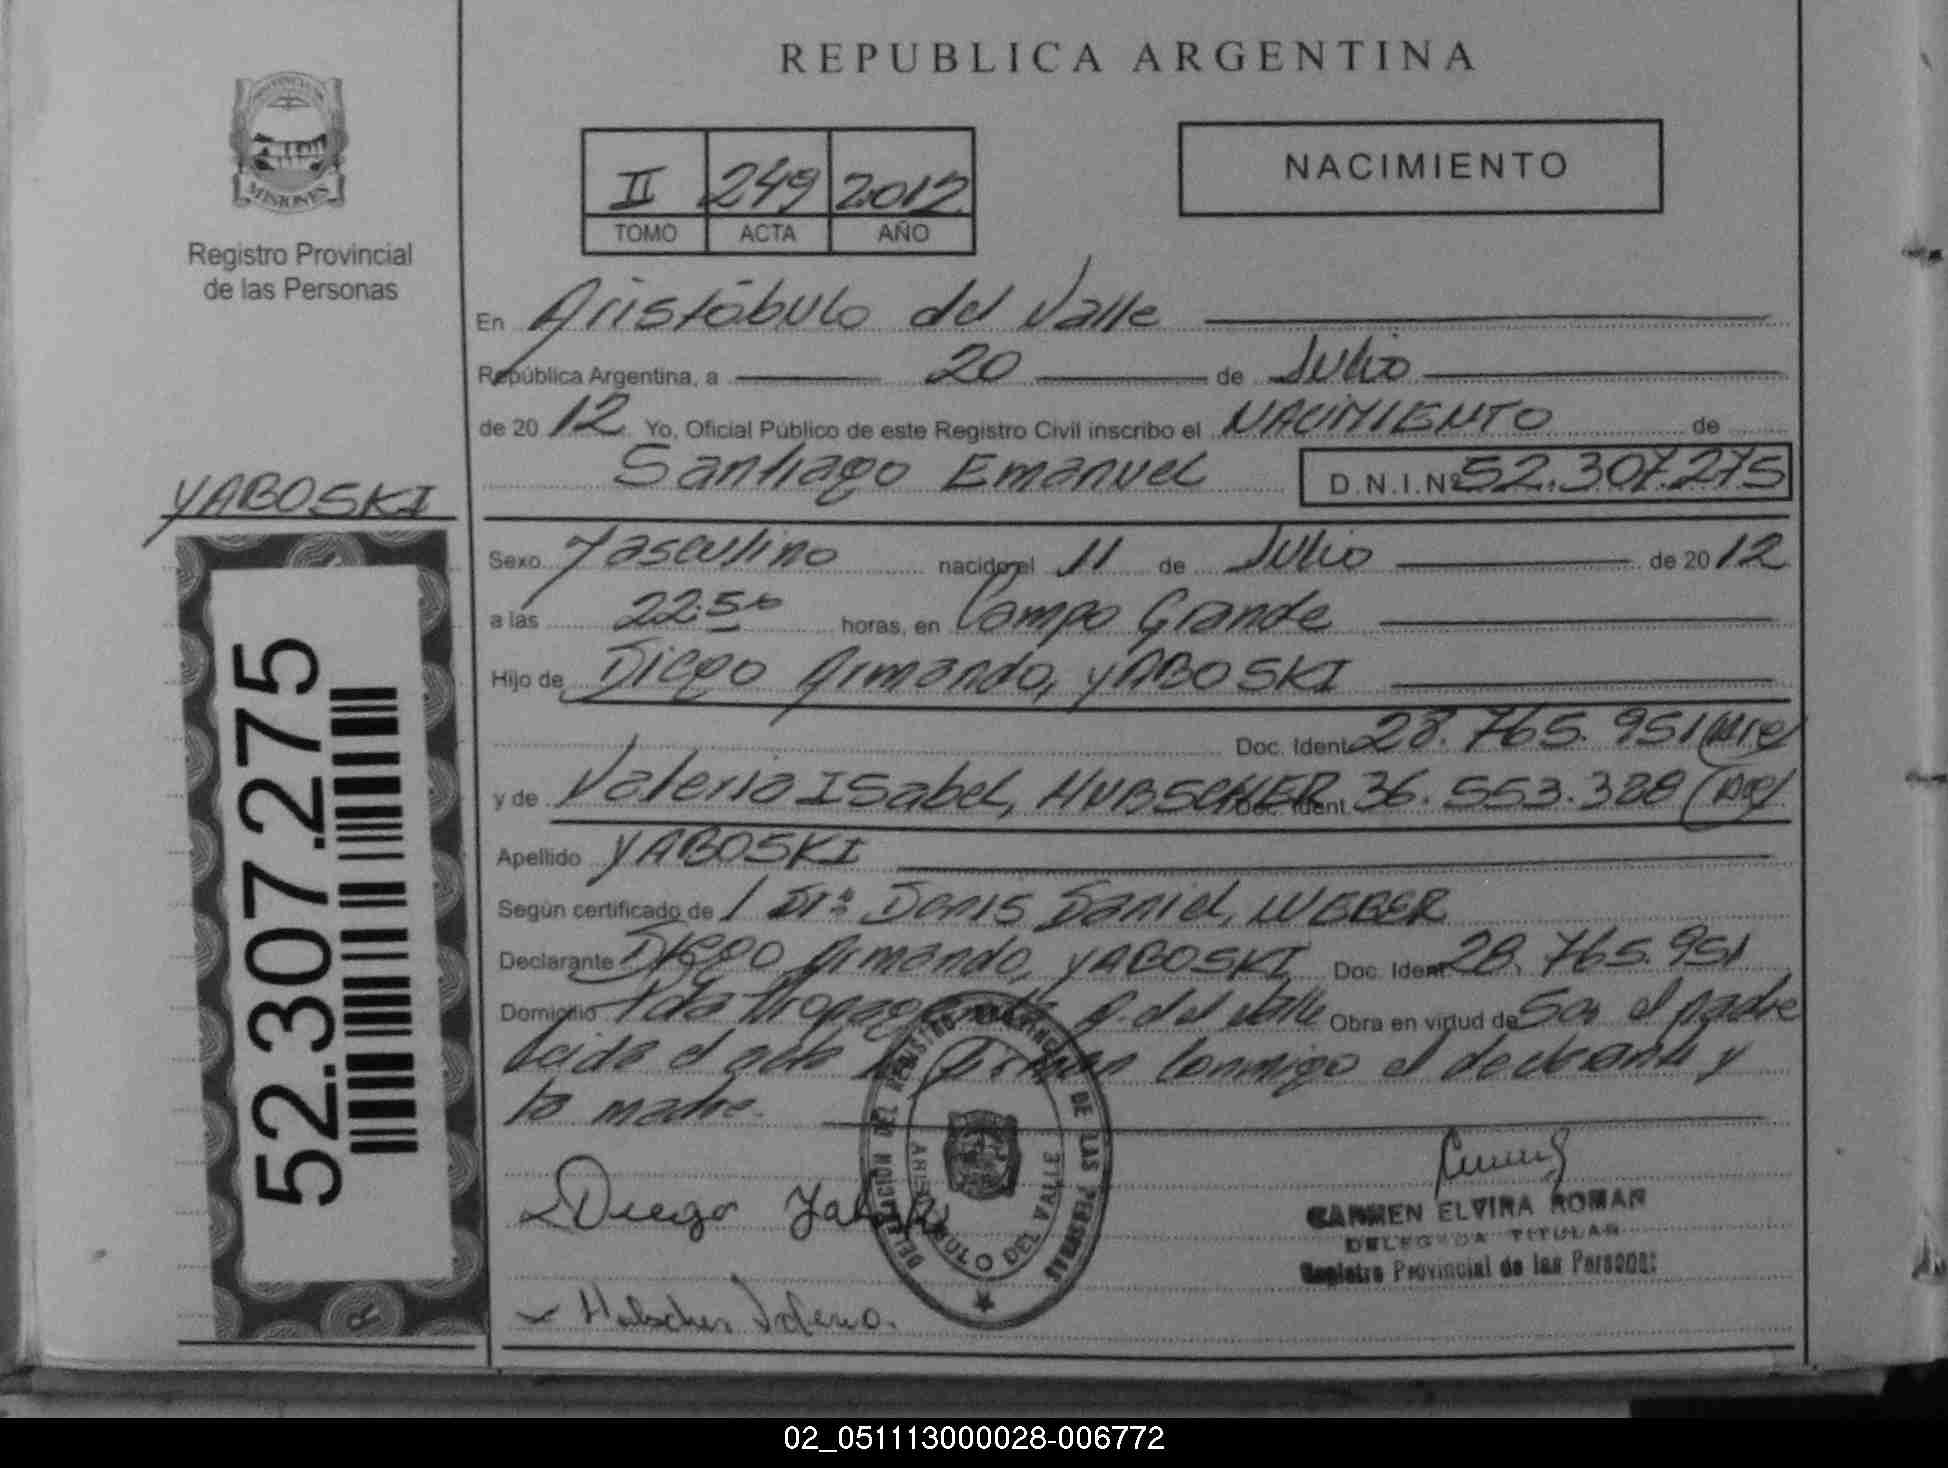 REPUBLICA ARGENTINA
PROVINCIA DE
MISIONES
Registro Provincial
de las Personas
II 249 2012
TOMO ACTA AÑO
NACIMIENTO
En Aristóbulo del Valle
República Argentina, a 20 de Julio
de 2012 Yo, Oficial Público de este Registro Civil inscribo el NACIMIENTO de
Santiago Emanuel D.N.I.Nº 52.307.275
YABOSKI
52.307.275
R
Sexo Masculino nacido el 11 de Julio de 2012
a las 22:50 horas, en Campo Grande
Hijo de Diego Armando, YABOSKI
Doc. Ident. 28.765.951
y de Valeria Isabel, HUBSCHER Doc. Ident. 36.553.328
Apellido YABOSKI
Según certificado de Denis Daniel, WEBER
Declarante Diego Armando, YABOSKI Doc. Ident. 28.765.951
Domicilio A. del Valle Obra en virtud de Ser el padre
Leída el acta la firman conmigo el declarante y
la madre.
DELEGACION DEL REGISTRO PROVINCIAL DE LAS PERSONAS
ARISTOBULO DEL VALLE
Diego Yaboski
CARMEN ELVIRA ROMAN
DELEGADA TITULAR
Registro Provincial de las Personas
Hubscher Valeria.
02_051113000028-006772